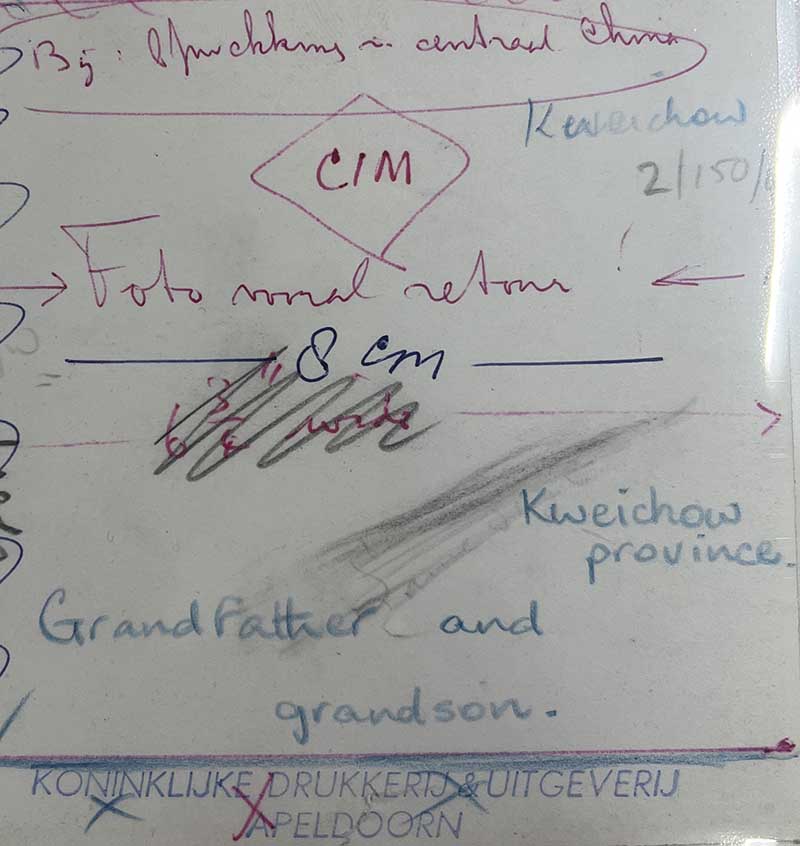 Bij: centraal China
Kweichow
2/150/
CIM
Foto vooral retour!
8 cm
6 3/8" wide
Kweichow
province.
Grandfather and
grandson.
KONINKLIJKE DRUKKERIJ & UITGEVERIJ
APELDOORN